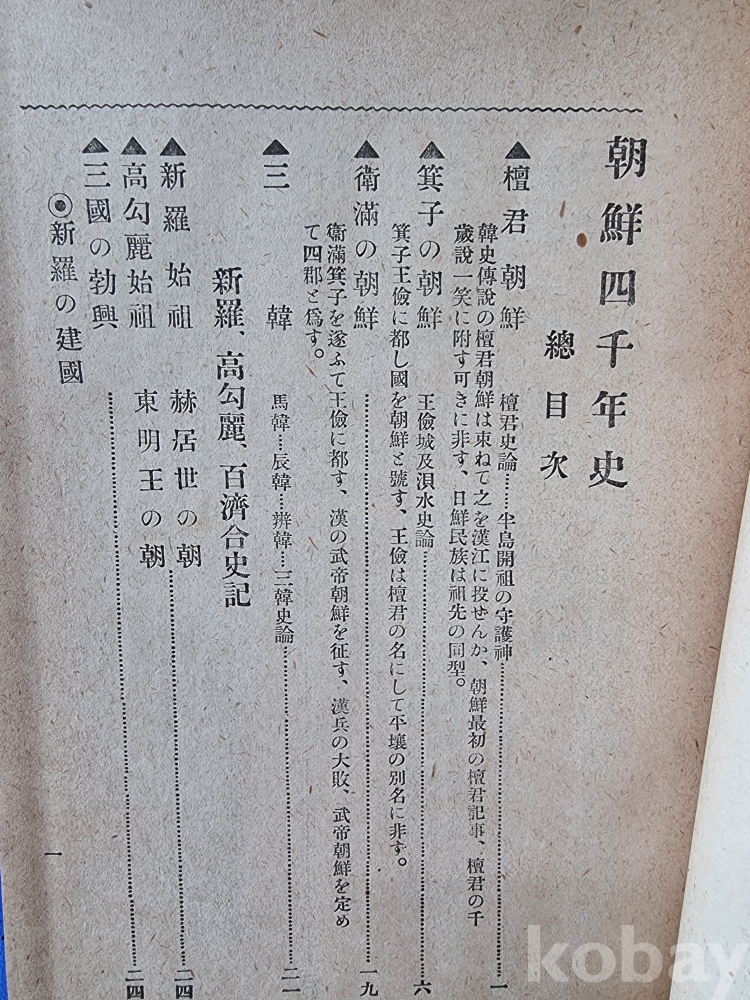 朝鮮四千年史
總目次
▲檀君朝鮮 檀君史論……半島開祖の守護神……一
韓史傳說の檀君朝鮮は束ねて之を漢江に投せんか、朝鮮最初の檀君記事、檀君の千
歲說一笑に附す可きに非す、日鮮民族は祖先の同型。
▲箕子の朝鮮 王儉城及浿水史論……六
箕子王儉に都し國を朝鮮と號す、王儉は檀君の名にして平壤の別名に非す。
▲衛滿の朝鮮……一九
衛滿箕子を遂ふて王儉に都す、漢の武帝朝鮮を征す、漢兵の大敗、武帝朝鮮を定め
て四郡と爲す。
▲三韓 馬韓…辰韓…辨韓…三韓史論……二一
新羅、高勾麗、百濟合史記
▲新羅始祖 赫居世の朝……二四
▲高勾麗始祖 東明王の朝
▲三國の勃興……二四
◉新羅の建國
一
kobay